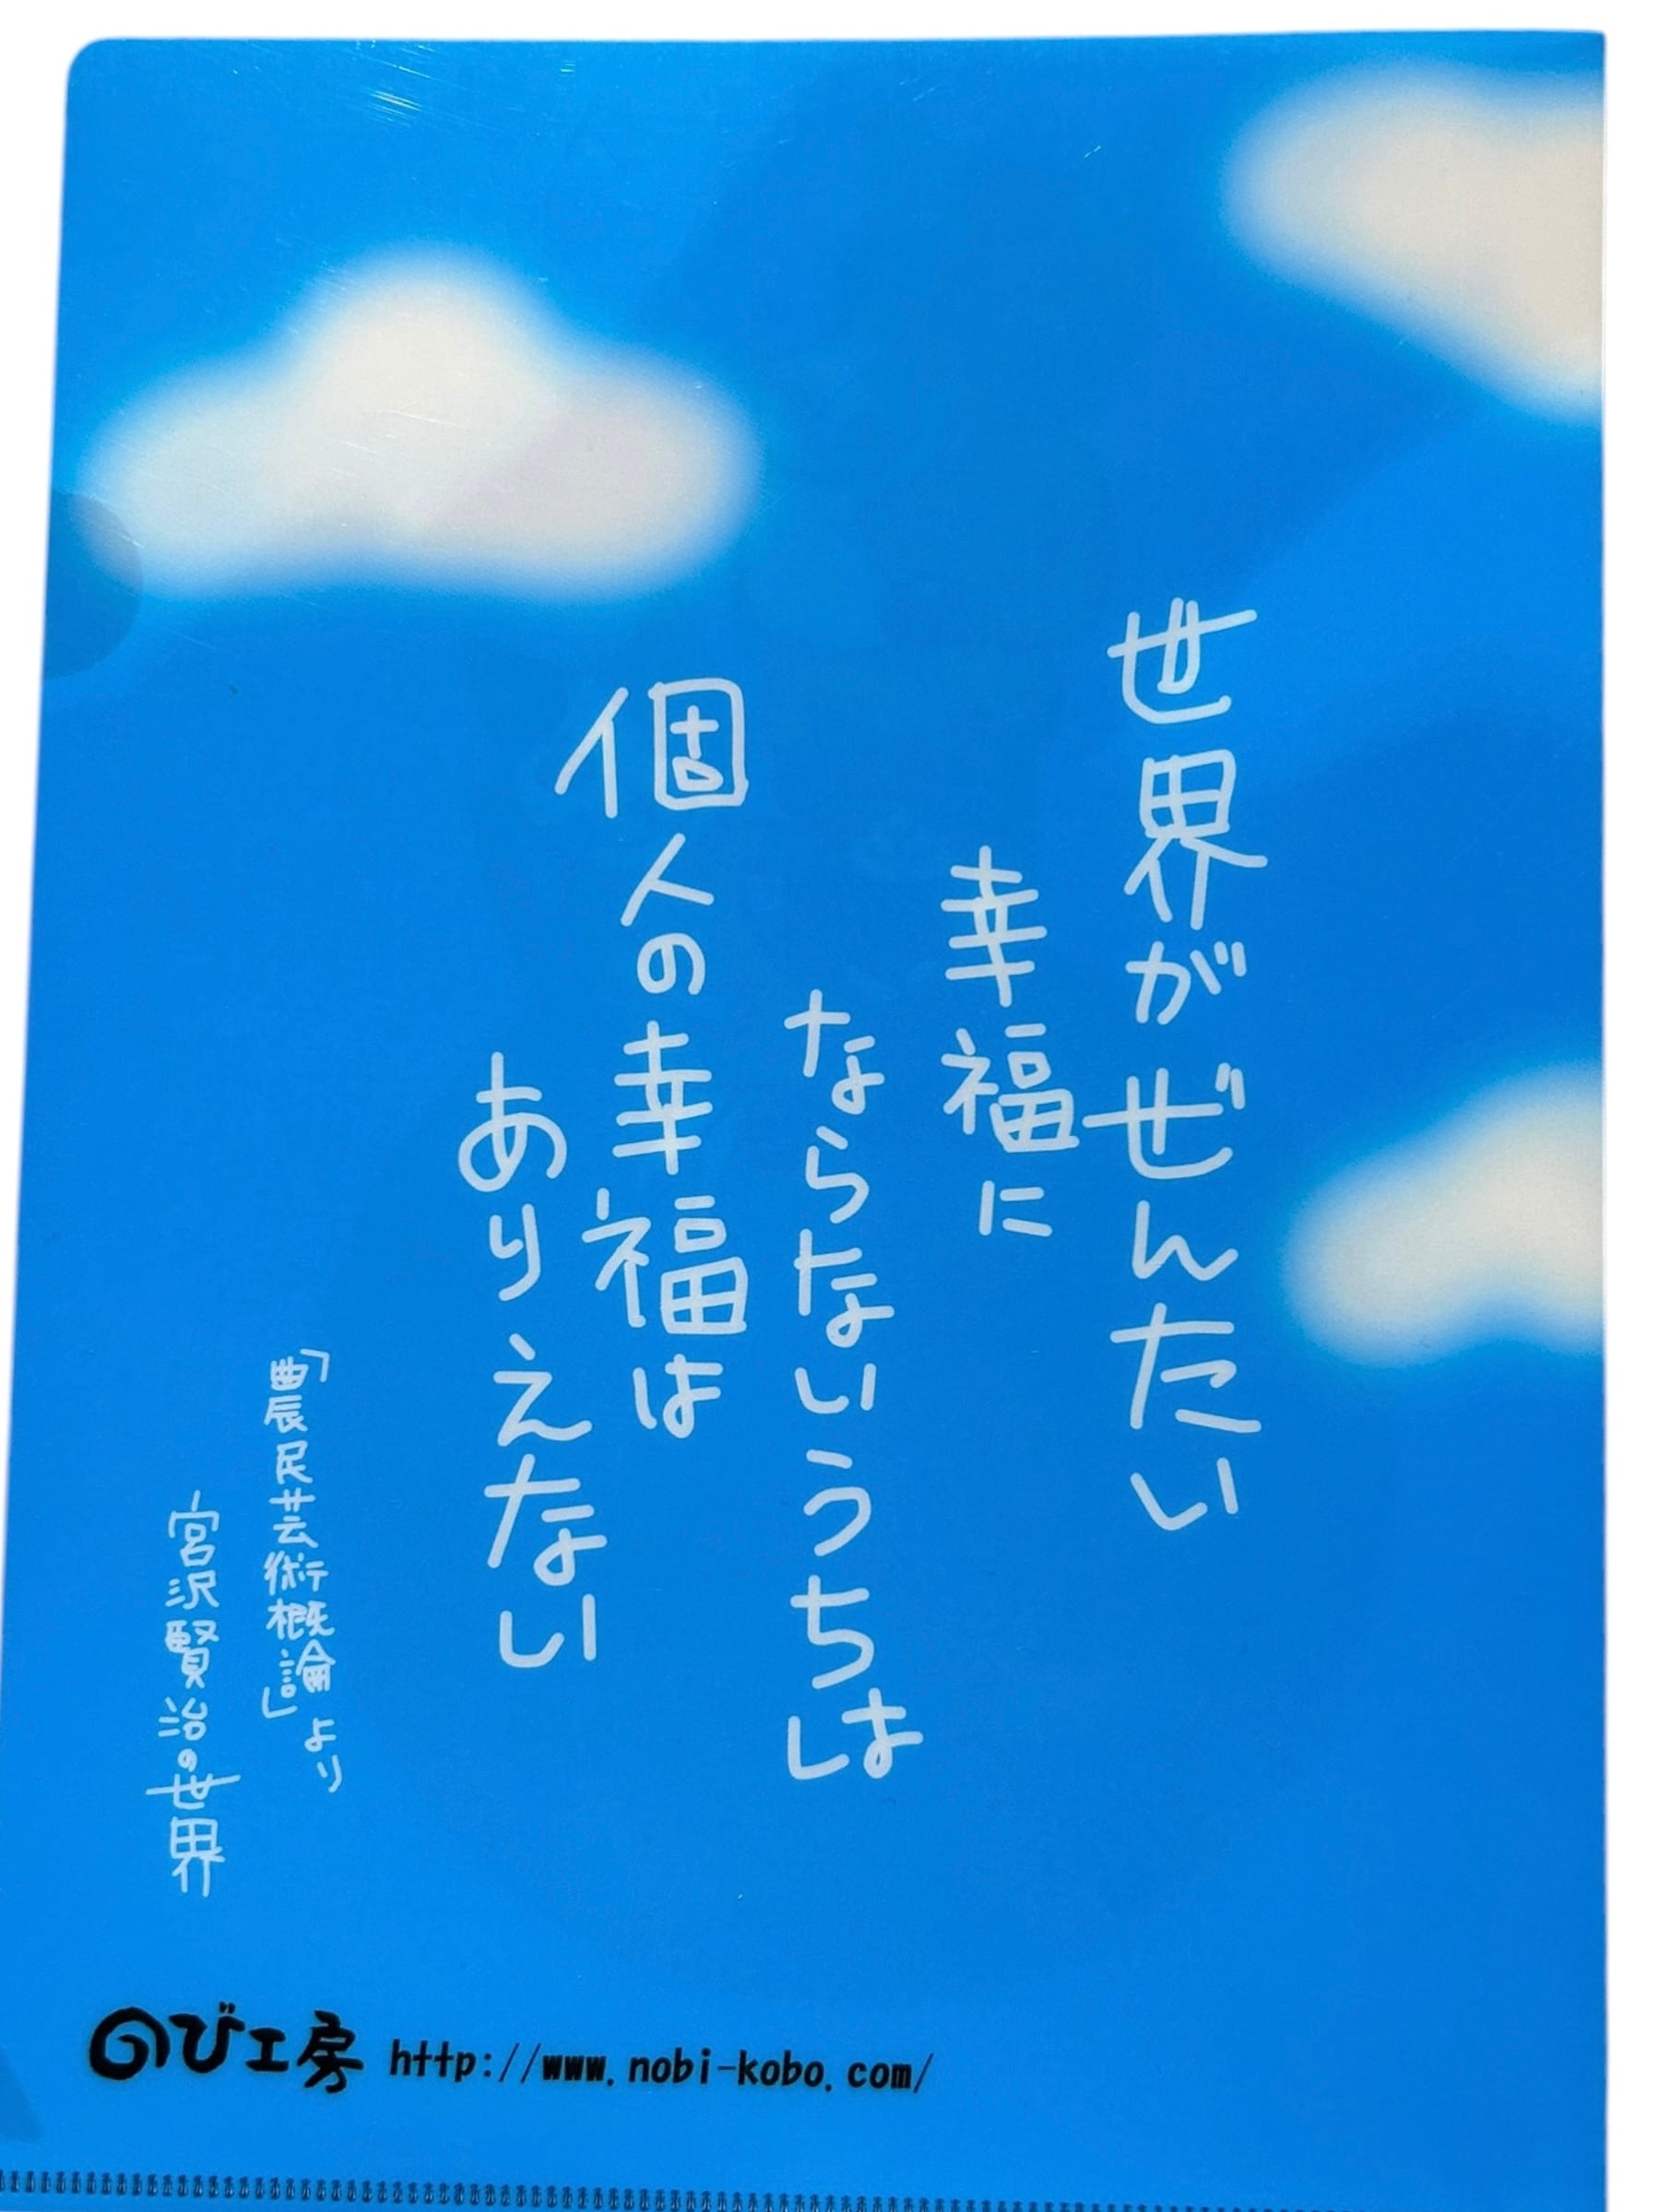 世界がぜんたい
幸福に
ならないうちは
個人の幸福は
ありえない
「農民芸術概論」より
宮沢賢治の世界
のび工房 http://www.nobi-kobo.com/